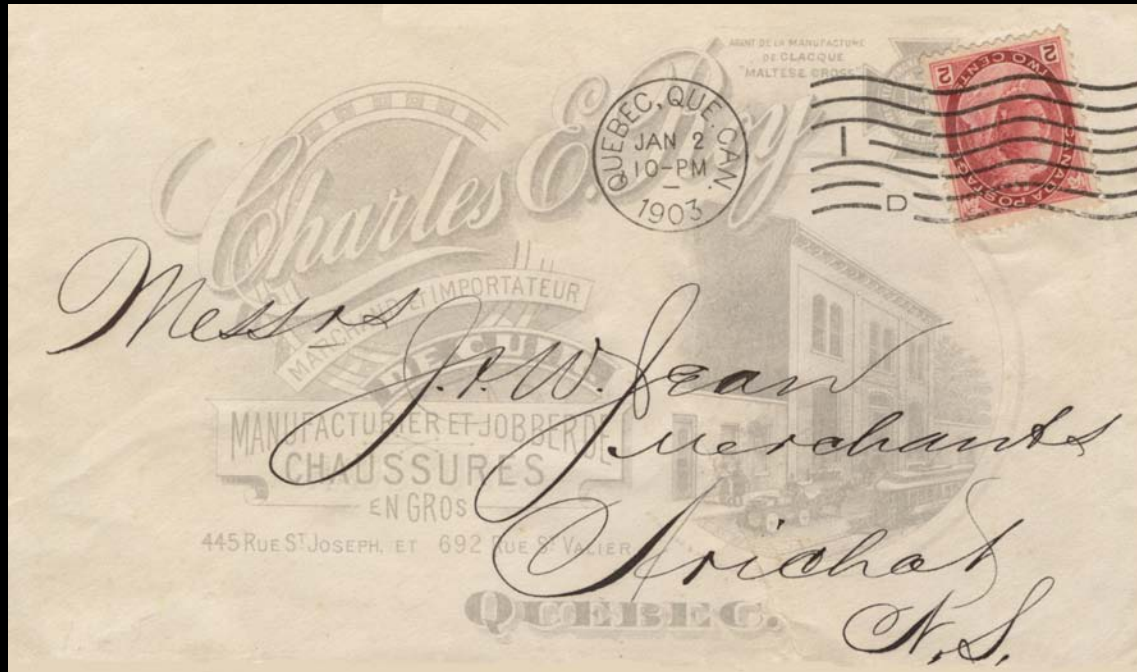 AGENT DE LA MANUFACTURE
DE CLACQUE
"MALTESE CROSS"
Charles E. Roy
QUEBEC, QUE. CAN.
JAN 2
10-PM
1903
I
D
2 2
TWO CENTS
CANADA POSTAGE
MARCHAND ET IMPORTATEUR
DE CUIR
MANUFACTURIER ET JOBBER DE
CHAUSSURES
EN GROS
445 RUE ST JOSEPH, ET 692 RUE ST VALIER
QUEBEC.
Messrs
J. & W. Jean
Merchants
Arichat
N.S.